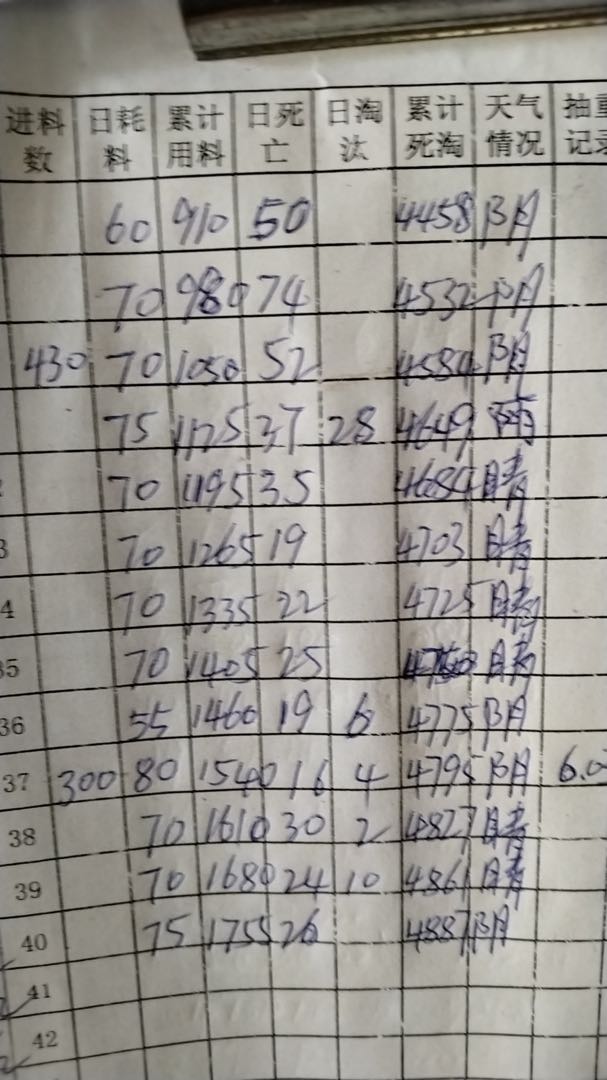 进料数 日耗料 累计用料 日死亡 日淘汰 累计死淘 天气情况 抽重记录
60 910 50 4458 阴
70 980 74 4532 阴
430 70 1050 52 4584 阴
75 1125 37 28 4649 雨
70 1195 35 4684 晴
3 70 1265 19 4703 晴
4 70 1335 22 4725 晴
35 70 1405 25 晴
36 55 1460 19 6 4775 阴
37 300 80 1540 16 4 4795 阴 6.0
38 70 1610 30 2 4827 晴
39 70 1680 24 10 4861 晴
40 75 1755 26 4887 阴
41
42